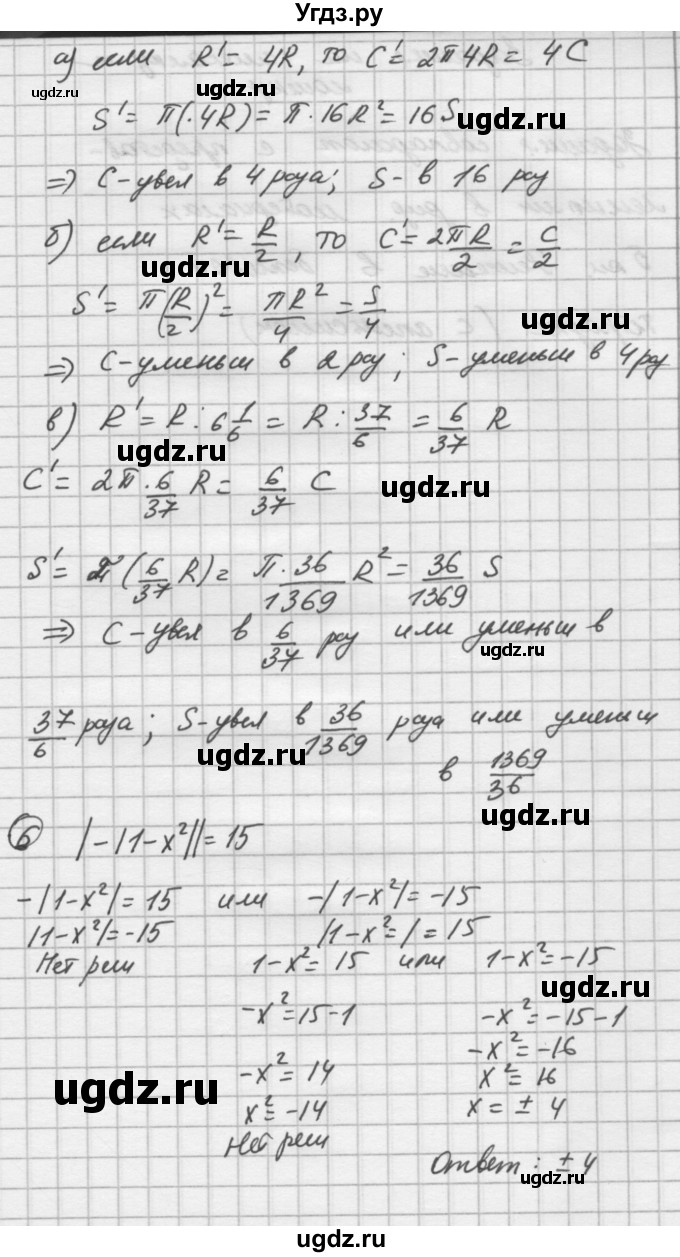 Угдз.ру
а) если R' = 4R, то C' = 2π4R = 4C
S' = π(·4R) = π·16R² = 16S
ugdz.ru
ugdz.ru
⇒ C-увел в 4 раза; S- в 16 раз
б) если R' = R/2, то C' = 2πR/2 = C/2
ugdz.ru
S' = π(R/2)² = πR²/4 = S/4
ugdz.ru
⇒ C-уменьш в 2 раз; S-уменьш в 4 раз
в) R' = R : 6 1/6 = R : 37/6 = 6/37 R
ugdz.ru
C' = 2π·6/37 R = 6/37 C
ugdz.ru
S' = π(6/37 R) = π·36/1369 R² = 36/1369 S
⇒ C-увел в 6/37 раз или уменьш в
ugdz.ru
37/6 раза; S-увел в 36/1369 раза или уменьш
ugdz.ru
в 1369/36
6 |-|1-x²|| = 15
ugdz.ru
-|1-x²| = 15 или -|1-x²| = -15
|1-x²| = -15 |1-x²=| = 15
Нет реш 1-x² = 15 или 1-x² = -15
ugdz.ru
-x² = 15-1 -x² = -15-1
-x² = 14 -x² = -16
x² = -14 x² = 16
Нет реш x = ± 4
ugdz.ru
Ответ: ± 4
ugdz.ru
ugdz.ru